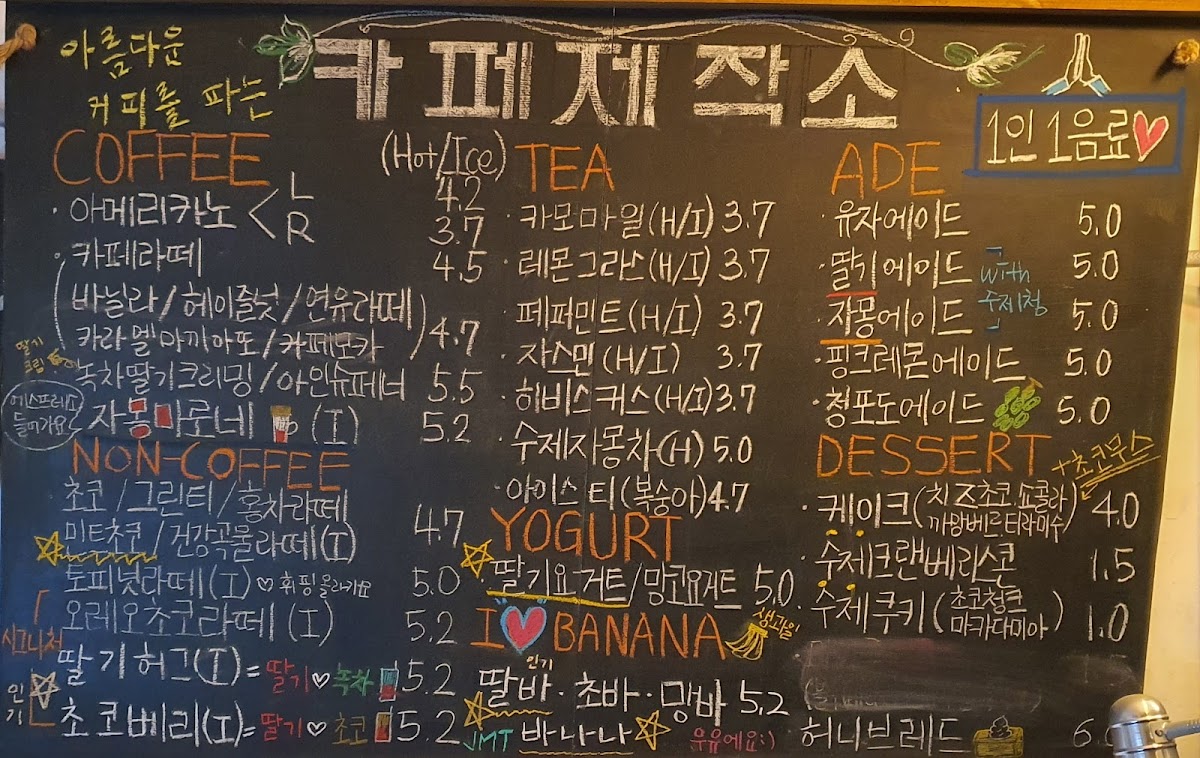 아름다운
커피를 파는
카페제작소
1인 1음료
COFFEE (Hot/Ice)
· 아메리카노 < L 4.2
R 3.7
· 카페라떼 4.5
(바닐라/헤이즐넛/연유라떼
카라멜마끼아또/카페모카) 4.7
딸기
크림
녹차딸기크리밍/아인슈페너 5.5
에스프레소
들어가요
자몽마로네 (I) 5.2
NON-COFFEE
초코/그린티/홍차라떼
민트초코/건강곡물라떼(I) 4.7
토피넛라떼(I) 휘핑올라가요 5.0
오레오초코라떼(I) 5.2
시그니처
인기
딸기허그(I)=딸기♡녹차 5.2
초코베리(I)=딸기♡초코 5.2
TEA
· 카모마일(H/I) 3.7
· 레몬그라스(H/I) 3.7
· 페퍼민트(H/I) 3.7
· 자스민(H/I) 3.7
· 히비스커스(H/I) 3.7
· 수제자몽차(H) 5.0
· 아이스티(복숭아) 4.7
YOGURT
· 딸기요거트/망코요거트 5.0
I ♡ BANANA 생과일
인기
딸바·초바·망바 5.2
JMT 바나나 우유에요:)
ADE
· 유자에이드 5.0
· 딸기에이드 5.0
with
수제청
· 자몽에이드 5.0
· 핑크레몬에이드 5.0
· 청포도에이드 5.0
DESSERT +초코무스
· 케이크(치즈초코.쇼콜라
까망베르.티라미수) 4.0
· 수제크랜베리스콘 1.5
· 수제쿠키(초코청크
마카다미아) 1.0
허니브레드